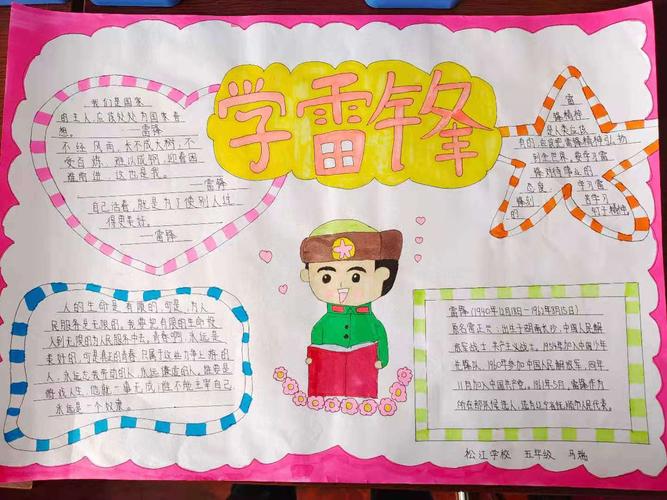 学雷锋
我们是国家
的主人,应该处处为国家着
想。
——雷锋
不经风雨,长不成大树,不
受百炼,难以成钢,迎着困
难前进,这也是我。
——雷锋
自己活着,就是为了使别人过
得更美好。
——雷锋
雷
锋精神
是人
有的,
到全世界,要学习雷
学习雷
钉子精神
人的生命是有限的,可是,为人
民服务是无限的,我要把有限的生命投
入到无限的为人民服务中去,青春啊,永远是
美好的,可是真正的青春,只属于这些力争上游的
人,永远忘我劳动的人,永远谦虚的人,谁要是
游戏人生,他就一事无成;谁不能主宰自己,
永远是一个奴隶。
雷锋(1940年12月18日-1962年8月15日)
原名雷正兴,出生于湖南长沙,中国人民解
放军战士,共产主义战士,1954年加入中国少年
先锋队,1960年参加中国人民解放军,同年
11月加入中国共产党。1961年5月,雷锋作为
所在部队候选人,选为辽宁省抚顺市人民代表。
松江学校 五年级 马瑞